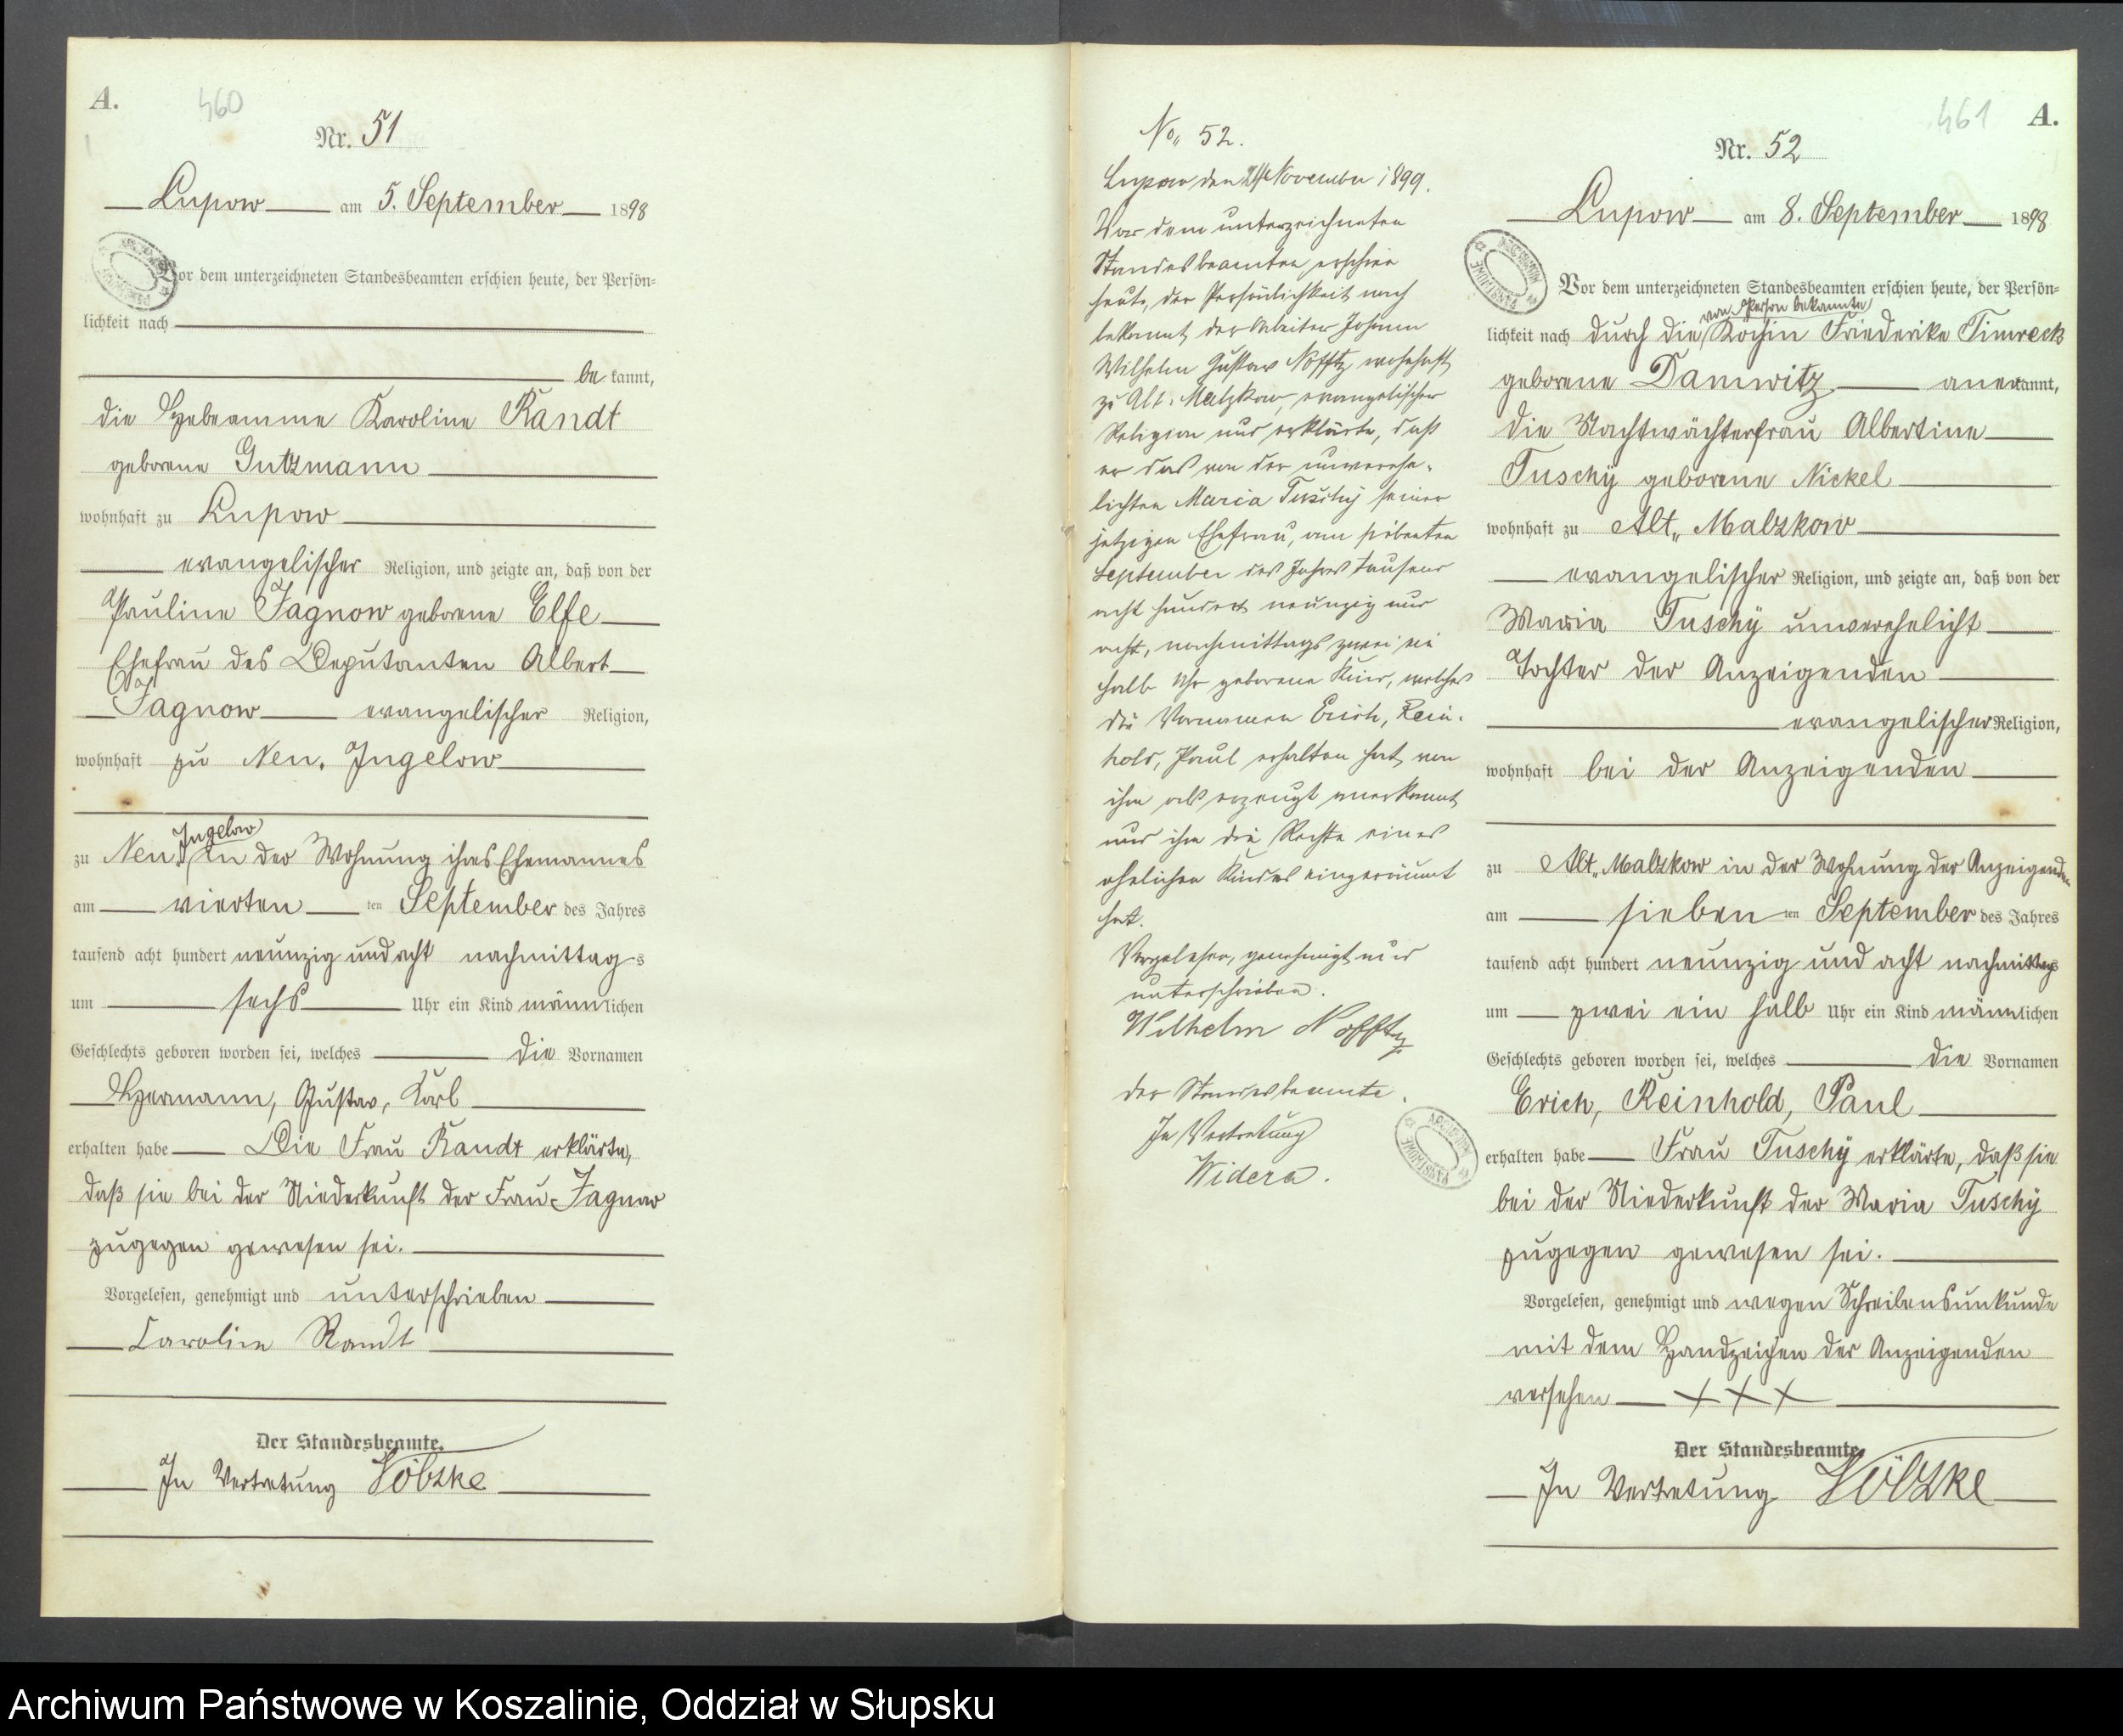 A.
460
Nr. 51
Lupow am 5. September 1898
Vor dem unterzeichneten Standesbeamten erschien heute, der Persön-
lichkeit nach
be kannt,
die Hebeamme Karoline Randt
geborene Gutzmann
wohnhaft zu Lupow
evangelischer Religion, und zeigte an, daß von der
Pauline Jagnow geborene Elfe
Ehefrau des Deputanten Albert
Jagnow evangelischer Religion,
wohnhaft zu Neu. Jugelow
Jugelow
zu Neu. in der Wohnung ihres Ehemannes
am vierten ten September des Jahres
tausend acht hundert neunzig und acht nachmittag s
um sechs Uhr ein Kind männlichen
Geschlechts geboren worden sei, welches die Vornamen
Hermann, Gustav, Karl
erhalten habe Die Frau Randt erklärte,
daß sie bei der Niederkunft der Frau Jagnow
zugegen gewesen sei.
Vorgelesen, genehmigt und unterschrieben
Karoline Randt
Der Standesbeamte.
In Vertretung
No. 52.
Lupow den November 1899.
Vor dem unterzeichneten
Standesbeamten erschien
heute, der Persönlichkeit nach
bekannt, der Arbeiter Johann
Wilhelm Gustav Nofftz wohnhaft
zu Alt. Malzkow, evangelischer
Religion und erklärte, daß
er das von der unverehe-
lichten Maria Tuschÿ seiner
jetzigen Ehefrau, am siebenten
September des Jahres tausend
acht hundert neunzig und
acht, nachmittags zwei ein
halb Uhr geborene Kind, welches
die Vornamen Erich, Rein-
hold, Paul erhalten hat, von
ihm als erzeugt anerkannt
und ihm die Rechte eines
ehelichen Kindes eingeräumt
hat.
Vorgelesen, genehmigt und
unterschrieben.
Wilhelm Nofftz
der Standesbeamte.
In Vertretung
Widera.
461
A.
Nr. 52
Lupow am 8. September 1898
Vor dem unterzeichneten Standesbeamten erschien heute, der Persön-
von Person bekannte
lichkeit nach durch die Köchin Friederike Timreck
geborene Damwitz anerkannt,
die Nachtwächterfrau Albertine
Tuschÿ geborene Nickel
wohnhaft zu Alt„ Malzkow
evangelischer Religion, und zeigte an, daß von der
Maria Tuschÿ unverehelicht
Tochter der Anzeigenden
evangelischer Religion,
wohnhaft bei der Anzeigenden
zu Alt„ Malzkow in der Wohnung der Anzeigenden
am sieben ten September des Jahres
tausend acht hundert neunzig und acht nachmittags
um zwei ein halb Uhr ein Kind männlichen
Geschlechts geboren worden sei, welches die Vornamen
Erich, Reinhold, Paul
erhalten habe Frau Tuschÿ erklärte, daß sie
bei der Niederkunft der Maria Tuschÿ
zugegen gewesen sei.
Vorgelesen, genehmigt und wegen Schreibensunkunde
mit dem Handzeichen der Anzeigenden
versehen +++
Der Standesbeamte.
In Vertretung
Archiwum Państwowe w Koszalinie, Oddział w Słupsku